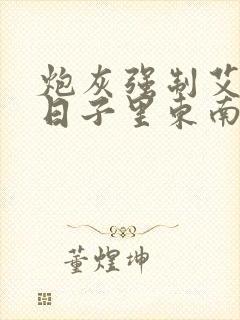 炮灰强制艾
日子里东南
董煌坤